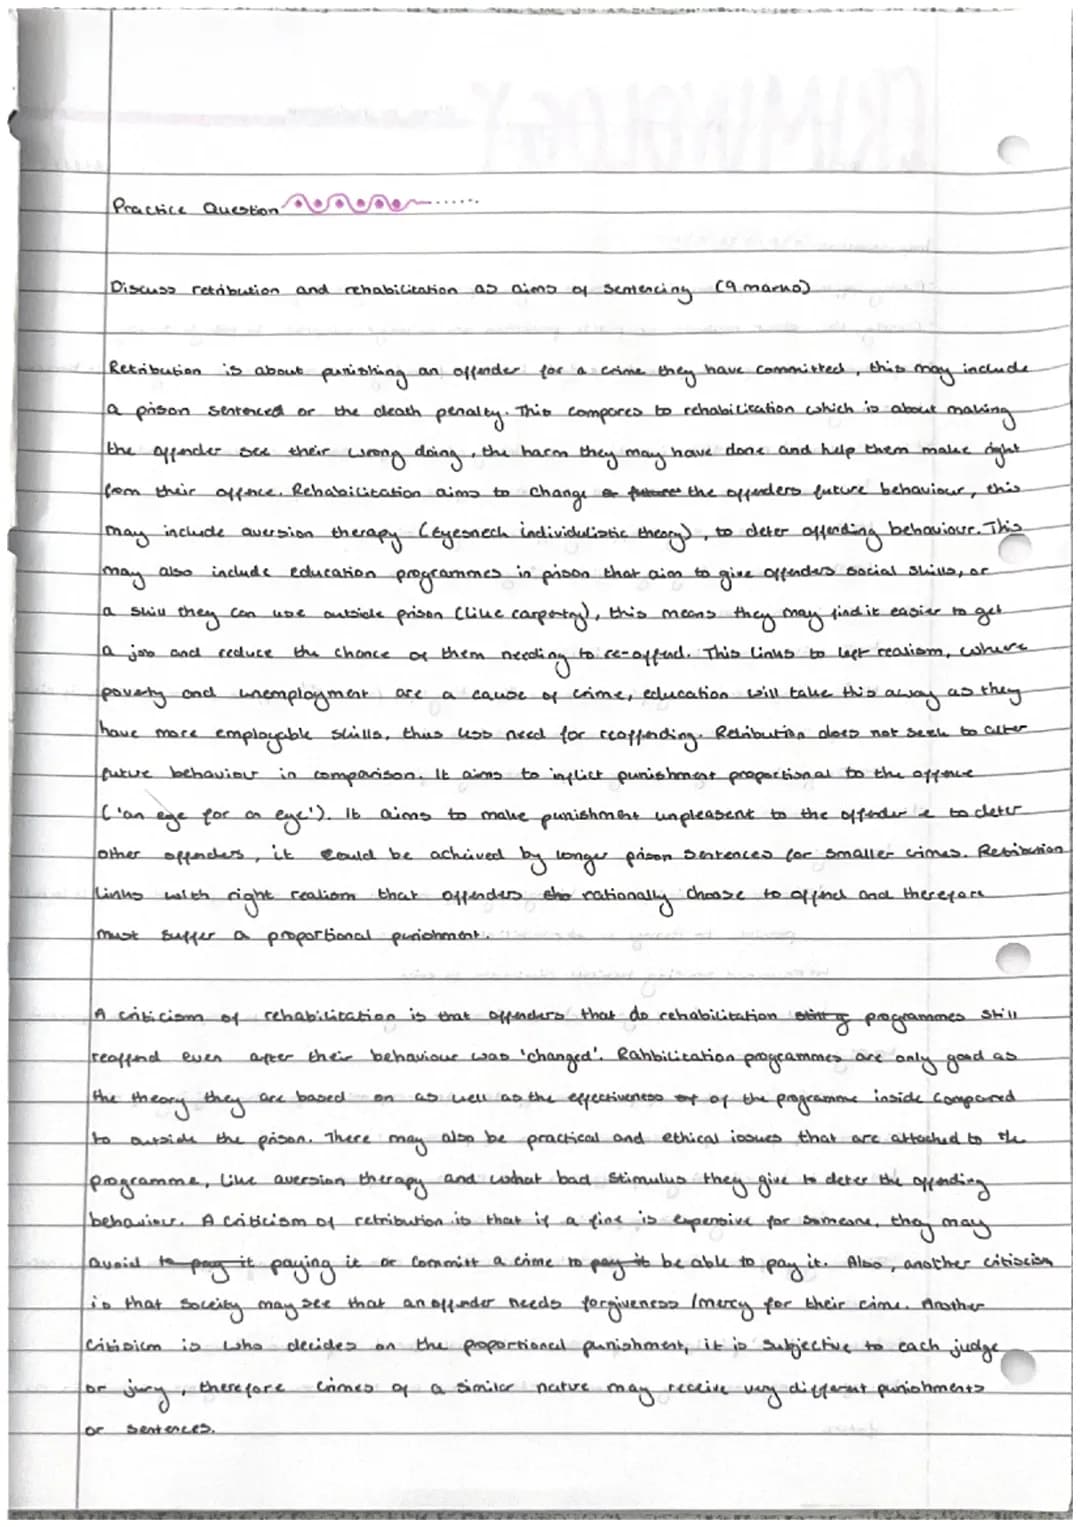 Practice Question
Discuss retribution and rehabilitation as aims of sentencing (9 marks)
Retribution is about punishing an offender for a crime they have committed, this may include
a prison sentenced or the death penalty. This compares to rehabilitation which is about making
the offender see their wrong doing, the harm they may have done and help them make right
from their offence. Rehabilitation aims to change the offenders future behaviour, this
may include aversion therapy (Eyesnech individulistic theory), to deter offending behaviour. This
may also include education programmes in prison that aim to give offenders social skills, or
a skill they can use outside prison (like carpentry), this means they may find it easier to get
a job and reduce the chance of them needing to re-offend. This links to left realism, where
poverty and unemployment are a cause of crime, education will take this away as they
have more employable skills, thus less need for reoffending. Retribution does not seek to alter
future behaviour in comparison. It aims to inflict punishment proportional to the offence
('an eye for an eye'). It aims to make punishment unpleasent to the offender & to deter
other offenders, it could be achieved by longer prison sentences for smaller crimes. Retribution
links with right realism that offenders rationally choose to offend and therefore
must suffer a proportional punishment.
A criticism of rehabilitation is that offenders that do rehabilitation programmes still
reoffend even after their behaviour was 'changed'. Rahbilitation programmes are only good as
the theory they are based on as well as the effectiveness of the programme inside compared
to outside the prison. There may also be practical and ethical issues that are attached to the
programme, like aversion therapy and what bad stimulus they give to deter the offending
behaviour. A criticism of retribution is that if a fine is expensive for someone, they may
avoid paying it or committ a crime to be able to pay it. Also, another citiscism
is that soceity may see that an offender needs forgiveness / mercy for their cime. Another
citisicm is who decides on the proportional punishment, it is subjective to each judge
or jury, therefore crimes of a similar nature may receive very different punishments
or sentences.